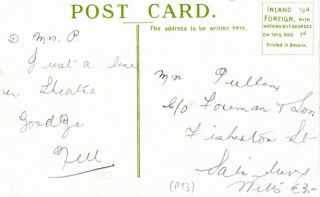 POST CARD.
The address to be written here.
INLAND ½d
FOREIGN, WITH
NOTHING BUT ADDRESS
ON THIS SIDE 1d
Printed in Bavaria.
D Mrs. P.
Just a line
Goodbye
Nell
Mrs Pullen
C/o Foreman & Son
Fisherton St
Salisbury
Wilts
£3.-